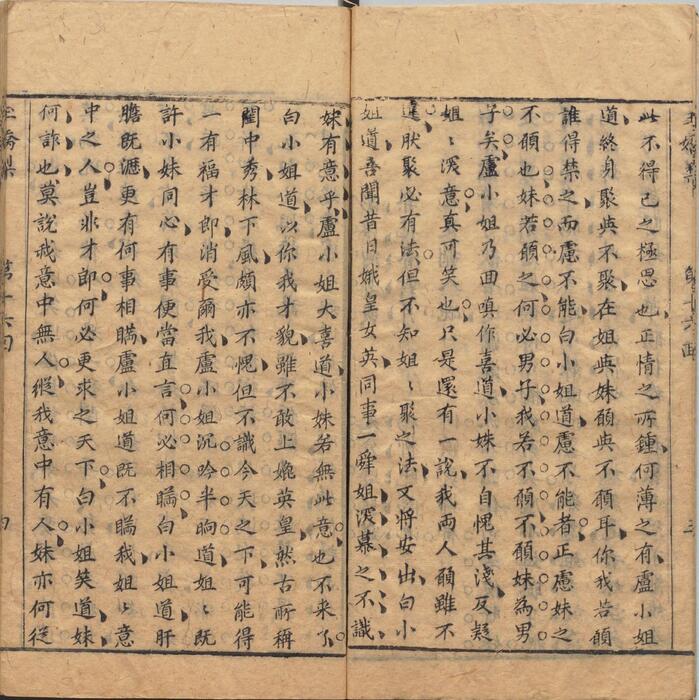 玉嬌梨
第十六回
三
此不得已之極思也正情之所鍾何薄之有盧小姐
道終身聚與不聚在姐與妹願與不願耳你我若願
誰得禁之而慮不能白小姐道慮不能者正慮妹之
不願也妹若願之何必男子我若不願不願妹為男
子矣盧小姐乃回嗔作喜道小妹不自愧其淺反疑
姐〻深意真可笑也只是還有一說我兩人願雖不
違肰聚必有法但不知姐〻聚之法又將安出白小
姐道吾聞昔日娥皇女英同事一舜姐深慕之不識
妹有意乎盧小姐大喜道小妹若無此意也不来了
白小姐道以你我才貌雖不敢上媲英皇然古所稱
閨中秀林下風頗亦不愧但不識今天之下可能得
一有福才郎消受爾我盧小姐沉吟半晌道姐〻既
許小妹同心有事便當直言何必相瞞白小姐道肝
膽既瀝更有何事相瞞盧小姐道既不瞞我姐〻意
中之人豈非才郎何必更求之天下白小姐笑道妹
何詐也莫說我意中無人縱我意中有人妹亦何從
玉嬌梨
第十六回
四